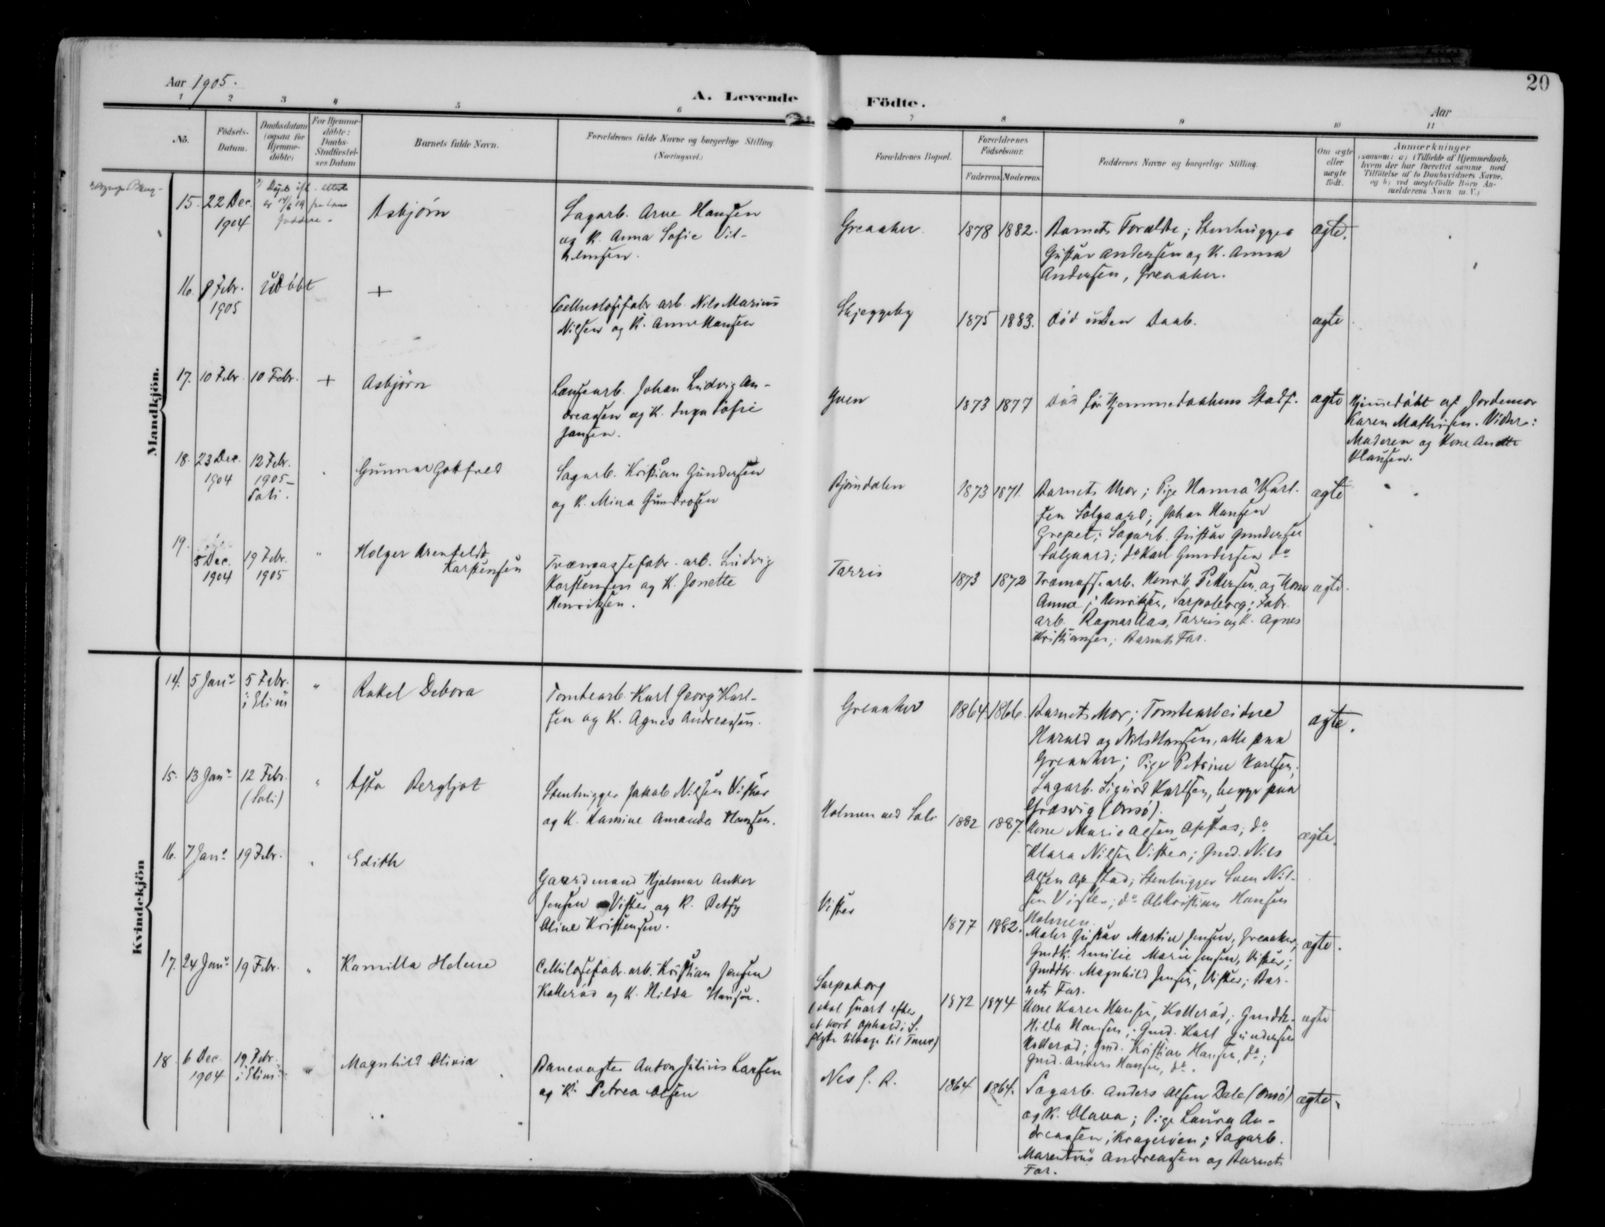 Aar 1905.
A. Levende Födte.
20
Aar
1 2 3 4 5 6 7 8 9 10 11
No.
Födsels-
Datum.
Daabsdatum
(ogsaa for
Hjemme-
döbte)
For Hjemme-
döbte:
Daabs-
Stadfæstel-
ses Datum
Barnets fulde Navn.
Forældrenes fulde Navne og borgerlige Stilling
(Næringsvei)
Forældrenes Bopæl.
Forældrenes
Födselsaar.
Faderens Moderens
Faddernes Navne og borgerlige Stilling.
Om ægte
eller
uægte
födt.
Anmærkninger
(saasom: a) i Tilfælde af Hjemmedaab,
hvem der har forrettet samme med
Tilföielse af to Daabsvidners Navne,
og b) ved uægtefödte Börn An-
melderens Navn m. V.)
Mandkjön.
15. 22 Dec.
1904
Asbjørn
Sagarb. Arne Hansen
og K. Anna Sofie Vil-
helmsen.
Greaaker
1878 1882.
Barnets Forældre; Stenhugger
Gustav Andersen og K. Anna
Andersen, Greaaker.
ægte.
16. 8 Febr.
1905
Udöbt
+
Cellulosefabr. arb. Nils Marius
Nilsen og K. Anna Hansen
Skjeggeby
1875 1883.
Död uden Daab.
ægte
17. 10 Febr. 10 Febr. +
Asbjørn
Landsearb. Johan Ludvig An-
dreassen og K. Inga Sofie
Jansen.
Yven
1873 1877
Död för Hjemmedaabens Stadf.
ægte
Hjemmedöbt af Jordemor
Karen Mathisen. Vidner:
Moderen og Kone Anette
Clausen.
18. 23 Dec.
1904
12 Febr.
1905
Soli.
Gunnar Gotfred
Sagarb. Kristian Gundersen
og K. Mina Gundersen
Bjørndalen
1873 1871.
Barnets Mor; Pige Hanna Karl-
sen Solgaard; Johan Hansen
Grepet; Sagarb. Gustav Gundersen
Solgaard; do Karl Gundersen do
ægte
19.
8 Dec.
1904
19 Febr.
1905
Holger Arenfeldt
Karstensen
Træmassefabr. arb. Ludvig
Karstensen og K. Jonette
Henriksen.
Tarris
1873 1872
Træmassearb. Henrik Pettersen og Kone
Anna; Henriksen, Sarpsborg; Fabr.
arb. Ragnar Aas, Tarris og K. Agnes
Kristiansen; Barnets Far.
ægte.
Kvindekjön
14. 5 Janr
5 Febr.
i Elim
Rakel Debora
Tomtearb. Karl Georg Karl-
sen og K. Agnes Andreassen.
Greaaker
1864 1866.
Barnets Mor; Tomtearbeidere
Harald og Nils Hansen, alle paa
Greaaker; Pige Petrine Karlsen;
Sagarb. Sigurd Karlsen, begge paa
Græsvig (Onsö).
ægte.
15. 13 Janr
12 Febr.
(Soli)
Asta Bergljot
Stenhugger Jakob Nilsen Vister
og K. Kamine Amanda Hansen.
Holmen ved Soli
1882 1887.
Kone Marie Olsen Opstad; do
Klara Nilsen Vister; Gmd. Nils
Olsen Opstad; Stenhugger Sven Nil-
sen Vister; do Ole Kristian Hansen
Holmen.
ægte.
16. 7 Janr 19 Febr.
Edith
Gaardmand Hjalmar Anker
Jensen Vister og K. Betsy
Oline Kristensen.
Vister
1877 1882.
Maler Gustav Martin Jensen, Greaaker;
Gmdk. Emilie Marie Jensen, Vister;
Gmddtr. Magnhild Jensen, Vister; Bar-
nets Far.
ægte.
17. 24 Janr 19 Febr.
Kamilla Helene
Cellulosefabr. arb. Kristian Jensen
Kollerød og K. Hilda Hansen.
Sarpsborg
(skal snart efter
et kort ophold i S.
flytte tilbage til Tune)
1872 1874
Kone Karen Hansen, Kollerød; Gmdk.
Hilda Hansen; Gmd. Karl Gundersen
Kollerød; Gmd. Kristian Hansen, do;
Gmd. Anders Hansen, do.
ægte
18 6 Dec.
1904
19 Febr.
i Elim
Magnhild Olivia
Banevogter Anton Julius Larsen
og K. Petrea Olsen
Nes
1864 1864.
Sagarb. Anders Olsen Dale (Onsö)
og K. Olava; Pige Laura An-
dreassen, Kragerøen; Sagarb.
Marentius Andreassen og Barnets
Far.
ægte.